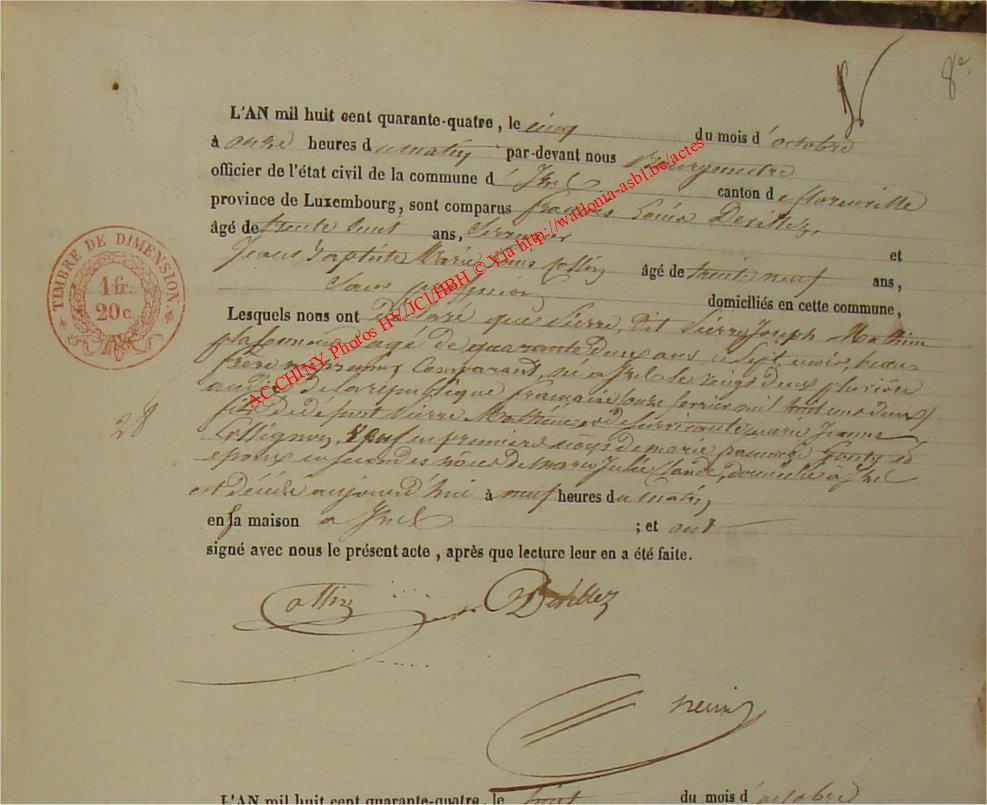 8e
L'AN mil huit cent quarante-quatre, le cinq du mois d'octobre
à onze heures du matin par-devant nous Bourgmestre
officier de l'état civil de la commune d'Izel canton de florenville
province de Luxembourg, sont comparus françois Louis Desillez
âgé de trente huit ans, Serrurier et
Jean Baptiste Marie Louis Collin âgé de trente neuf ans,
Sans profession domiciliés en cette commune,
Lesquels nous ont Déclaré que Pierre, dit Pierre Joseph Mathieu
plafonneur agé de quarante deux ans et sept mois, beau
frère au premier Comparant, né a Izel le vingt deux pluviôse
an dix de la république française onze fevrier mil huit cent deux
fils de défunt Pierre Mathieu et de survivante marie Jeanne
Collignon, veuf en premières nôces de marie françoise et
epoux en secondes nôces de marie Julie domicilié à Izel
est décédé aujourd'hui à neuf heures du matin
en sa maison a Izel ; et ont
signé avec nous le présent acte, après que lecture leur en a été faite.
Collin Desillez
TIMBRE DE DIMENSION
1 fr.
20 c.
28
ACCHINY Photos HV/JCl/HBH © Via http://wallonia-asbl.be/actes
L'AN mil huit cent quarante-quatre, le huit du mois d'octobre